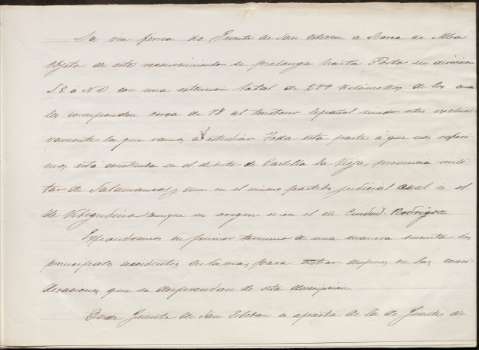 La via ferrea de Fuente de San Esteban a Barca de Alva
objeto de este reconocimiento se prolonga hasta Porto en direccion
S.E. a N.O. con una extension total de 279 kilometros de los cua
les corresponden cerca de 78 al territorio español siendo esta exclusi
vamente la que vamos a estudiar. Toda esta parte a que nos referi
mos esta enclavada en el distrito de Castilla la Vieja, provincia mili
tar de Salamanca y en el mismo partido judicial en el
de Vitigudino aunque su origen es en el de Ciudad Rodrigo.
Expondremos en primer termino de una manera sucinta los
principales accidentes de la via, para tratar despues en las consi
deraciones que se desprendan de esta descripcion.
Desde Fuente de San Esteban se aparta de la de Fuentes de